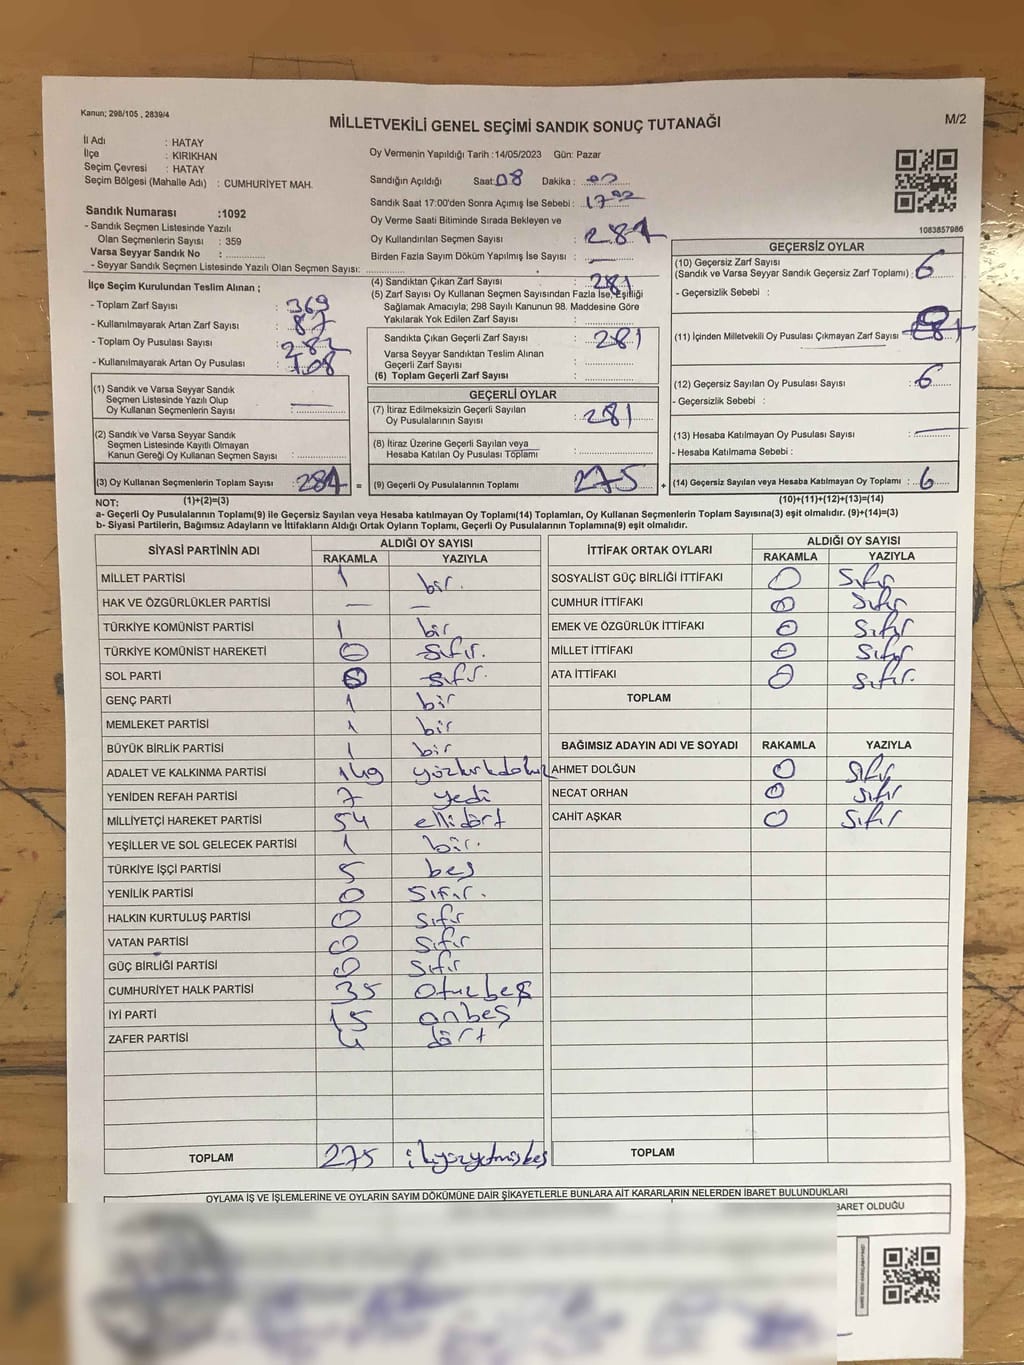 Kanun; 298/105 , 2839/4
MİLLETVEKİLİ GENEL SEÇİMİ SANDIK SONUÇ TUTANAĞI
M/2
İl Adı : HATAY
İlçe : KIRIKHAN
Seçim Çevresi : HATAY
Seçim Bölgesi (Mahalle Adı) : CUMHURİYET MAH.
Oy Vermenin Yapıldığı Tarih :14/05/2023 Gün: Pazar
Sandığın Açıldığı Saat: 08 Dakika :
Sandık Saat 17:00'den Sonra Açımış İse Sebebi :
Oy Verme Saati Bitiminde Sırada Bekleyen ve
Oy Kullandırılan Seçmen Sayısı :
Birden Fazla Sayım Döküm Yapılmış İse Sayısı :
1083857986
Sandık Numarası :1092
- Sandık Seçmen Listesinde Yazılı
Olan Seçmenlerin Sayısı : 359
Varsa Seyyar Sandık No :
- Seyyar Sandık Seçmen Listesinde Yazılı Olan Seçmen Sayısı:
İlçe Seçim Kurulundan Teslim Alınan ;
- Toplam Zarf Sayısı : 369
- Kullanılmayarak Artan Zarf Sayısı : 87
- Toplam Oy Pusulası Sayısı :
- Kullanılmayarak Artan Oy Pusulası : 108
(1) Sandık ve Varsa Seyyar Sandık
Seçmen Listesinde Yazılı Olup
Oy Kullanan Seçmenlerin Sayısı : —
(2) Sandık ve Varsa Seyyar Sandık
Seçmen Listesinde Kayıtlı Olmayan
Kanun Gereği Oy Kullanan Seçmen Sayısı :
(3) Oy Kullanan Seçmenlerin Toplam Sayısı : =
(1)+(2)=(3)
(4) Sandıktan Çıkan Zarf Sayısı : 281
(5) Zarf Sayısı Oy Kullanan Seçmen Sayısından Fazla İse, Eşitliği
Sağlamak Amacıyla; 298 Sayılı Kanunun 98. Maddesine Göre
Yakılarak Yok Edilen Zarf Sayısı :
Sandıkta Çıkan Geçerli Zarf Sayısı : 281
Varsa Seyyar Sandıktan Teslim Alınan
Geçerli Zarf Sayısı :
(6) Toplam Geçerli Zarf Sayısı :
GEÇERLİ OYLAR
(7) İtiraz Edilmeksizin Geçerli Sayılan
Oy Pusulalarının Sayısı : 281
(8) İtiraz Üzerine Geçerli Sayılan veya
Hesaba Katılan Oy Pusulası Toplamı :
(9) Geçerli Oy Pusulalarının Toplamı : 275 +
GEÇERSİZ OYLAR
(10) Geçersiz Zarf Sayısı
(Sandık ve Varsa Seyyar Sandık Geçersiz Zarf Toplamı) : 6
- Geçersizlik Sebebi :
(11) İçinden Milletvekili Oy Pusulası Çıkmayan Zarf Sayısı :
(12) Geçersiz Sayılan Oy Pusulası Sayısı : 6
- Geçersizlik Sebebi :
(13) Hesaba Katılmayan Oy Pusulası Sayısı : —
- Hesaba Katılmama Sebebi :
(14) Geçersiz Sayılan veya Hesaba Katılmayan Oy Toplamı : 6
(10)+(11)+(12)+(13)=(14)
NOT:
a- Geçerli Oy Pusulalarının Toplamı(9) ile Geçersiz Sayılan veya Hesaba katılmayan Oy Toplamı(14) Toplamları, Oy Kullanan Seçmenlerin Toplam Sayısına(3) eşit olmalıdır. (9)+(14)=(3)
b- Siyasi Partilerin, Bağımsız Adayların ve İttifakların Aldığı Ortak Oyların Toplamı, Geçerli Oy Pusulalarının Toplamına(9) eşit olmalıdır.
SİYASİ PARTİNİN ADI ALDIĞI OY SAYISI
RAKAMLA YAZIYLA
MİLLET PARTİSİ 1 bir.
HAK VE ÖZGÜRLÜKLER PARTİSİ — —
TÜRKİYE KOMÜNİST PARTİSİ 1 bir
TÜRKİYE KOMÜNİST HAREKETİ 0 sıfır.
SOL PARTİ 0 sıfır.
GENÇ PARTİ 1 bir
MEMLEKET PARTİSİ 1 bir
BÜYÜK BİRLİK PARTİSİ 1 bir
ADALET VE KALKINMA PARTİSİ 149 yözkırkdokuz
YENİDEN REFAH PARTİSİ 7 yedi
MİLLİYETÇİ HAREKET PARTİSİ 54 ellidört
YEŞİLLER VE SOL GELECEK PARTİSİ 1 bir.
TÜRKİYE İŞÇİ PARTİSİ 5 beş
YENİLİK PARTİSİ 0 Sıfır.
HALKIN KURTULUŞ PARTİSİ 0 Sıfır
VATAN PARTİSİ 0 Sıfır
GÜÇ BİRLİĞİ PARTİSİ 0 Sıfır
CUMHURİYET HALK PARTİSİ 35 Otuzbeş
İYİ PARTİ 15 onbeş
ZAFER PARTİSİ 4 dört
TOPLAM 275 ikiyözyetmişbeş
İTTİFAK ORTAK OYLARI ALDIĞI OY SAYISI
RAKAMLA YAZIYLA
SOSYALİST GÜÇ BİRLİĞİ İTTİFAKI 0 Sıfır
CUMHUR İTTİFAKI 0 Sıfır
EMEK VE ÖZGÜRLÜK İTTİFAKI 0 Sıfır
MİLLET İTTİFAKI 0 Sıfır
ATA İTTİFAKI 0 Sıfır.
TOPLAM
BAĞIMSIZ ADAYIN ADI VE SOYADI RAKAMLA YAZIYLA
AHMET DOLĞUN 0 Sıfır
NECAT ORHAN 0 Sıfır
CAHİT AŞKAR 0 Sıfır
TOPLAM
OYLAMA İŞ VE İŞLEMLERİNE VE OYLARIN SAYIM DÖKÜMÜNE DAİR ŞİKAYETLERLE BUNLARA AİT KARARLARIN NELERDEN İBARET BULUNDUKLARI
BARET OLDUĞU